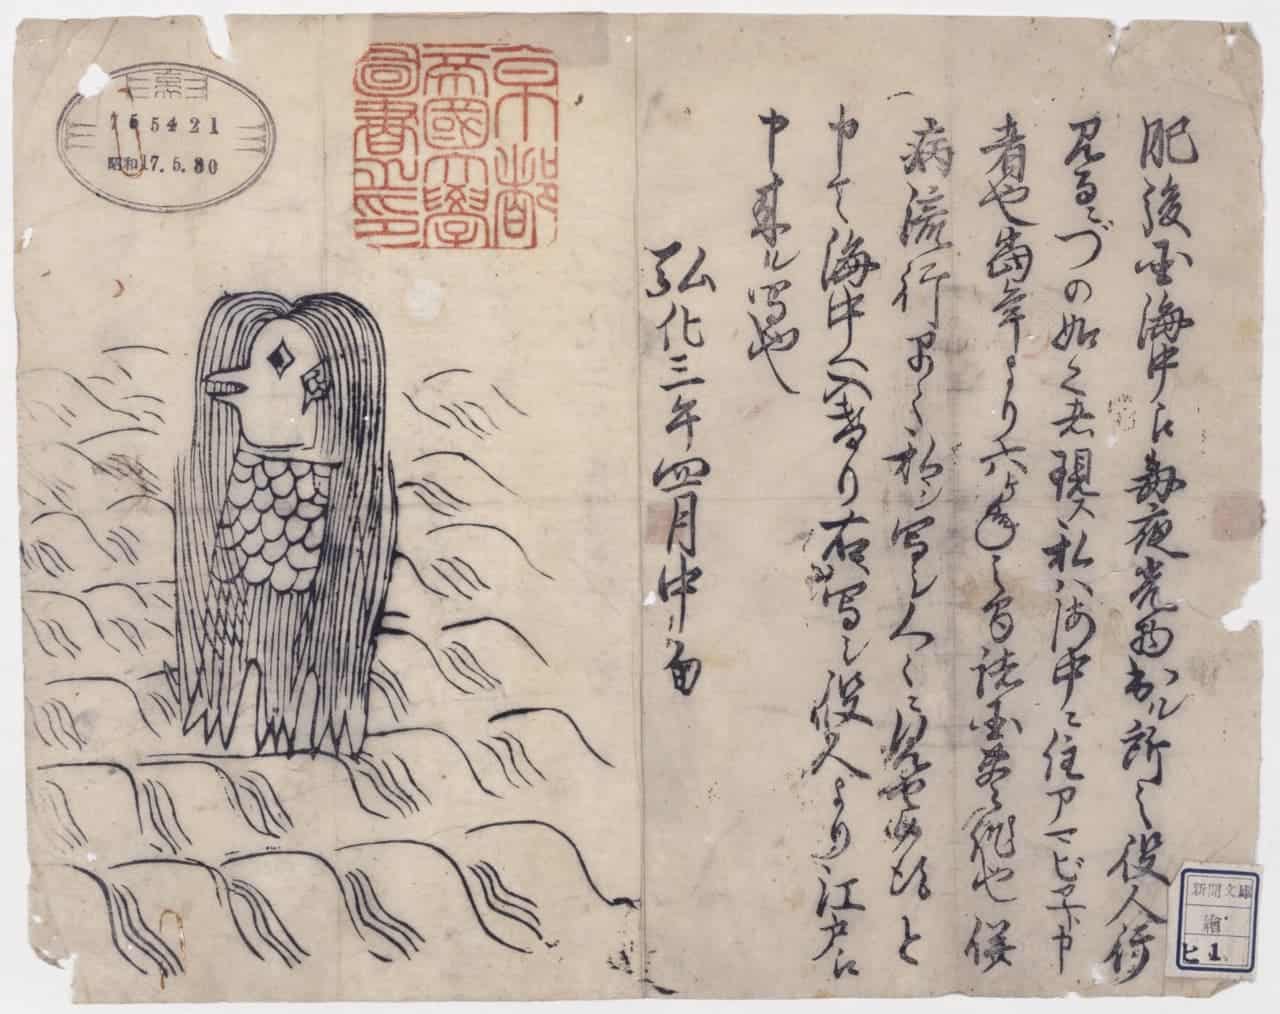 肥後国海中江毎夜光物出ル所之役人行
見るニづの如之者現ス私ハ海中ニ住アマビヱト申
者也當年より六ヶ年之間諸国豊作也併
病流行早々私シ写シ人々ニ見せ候得と
申て海中へ入けり右写シ役人より江戸江
申来ル写也
弘化三年四月中旬
京都
帝國大學
圖書之印
昭和17.5.30
新聞文庫
繪
ヒ 1.